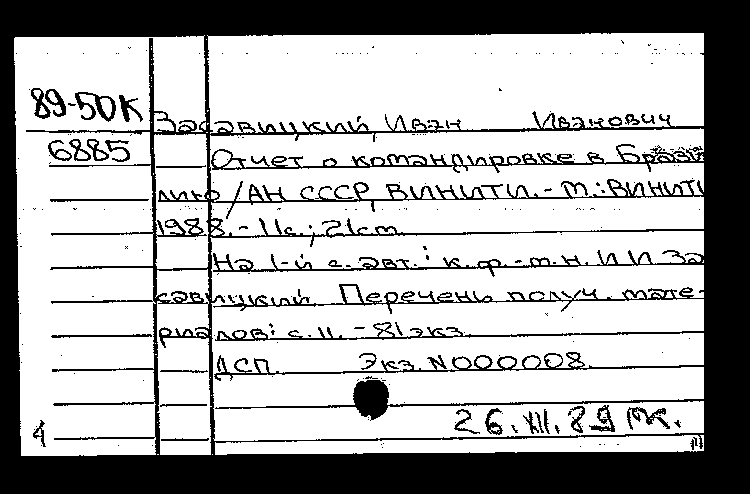 89-50К
Засавицкий, Иван Иванович
6885
Отчет о командировке в Брази
лию / АН СССР, ВИНИТИ. - М.: ВИНИТИ
1988. - 11с.; 21см.
На 1-й с. авт.: к. ф.-м. н. И И За
савицкий. Перечень получ. мате-
риалов: с. 11. - 81 экз.
ДСП Экз. N000008.
26.XII.89 МК.
4